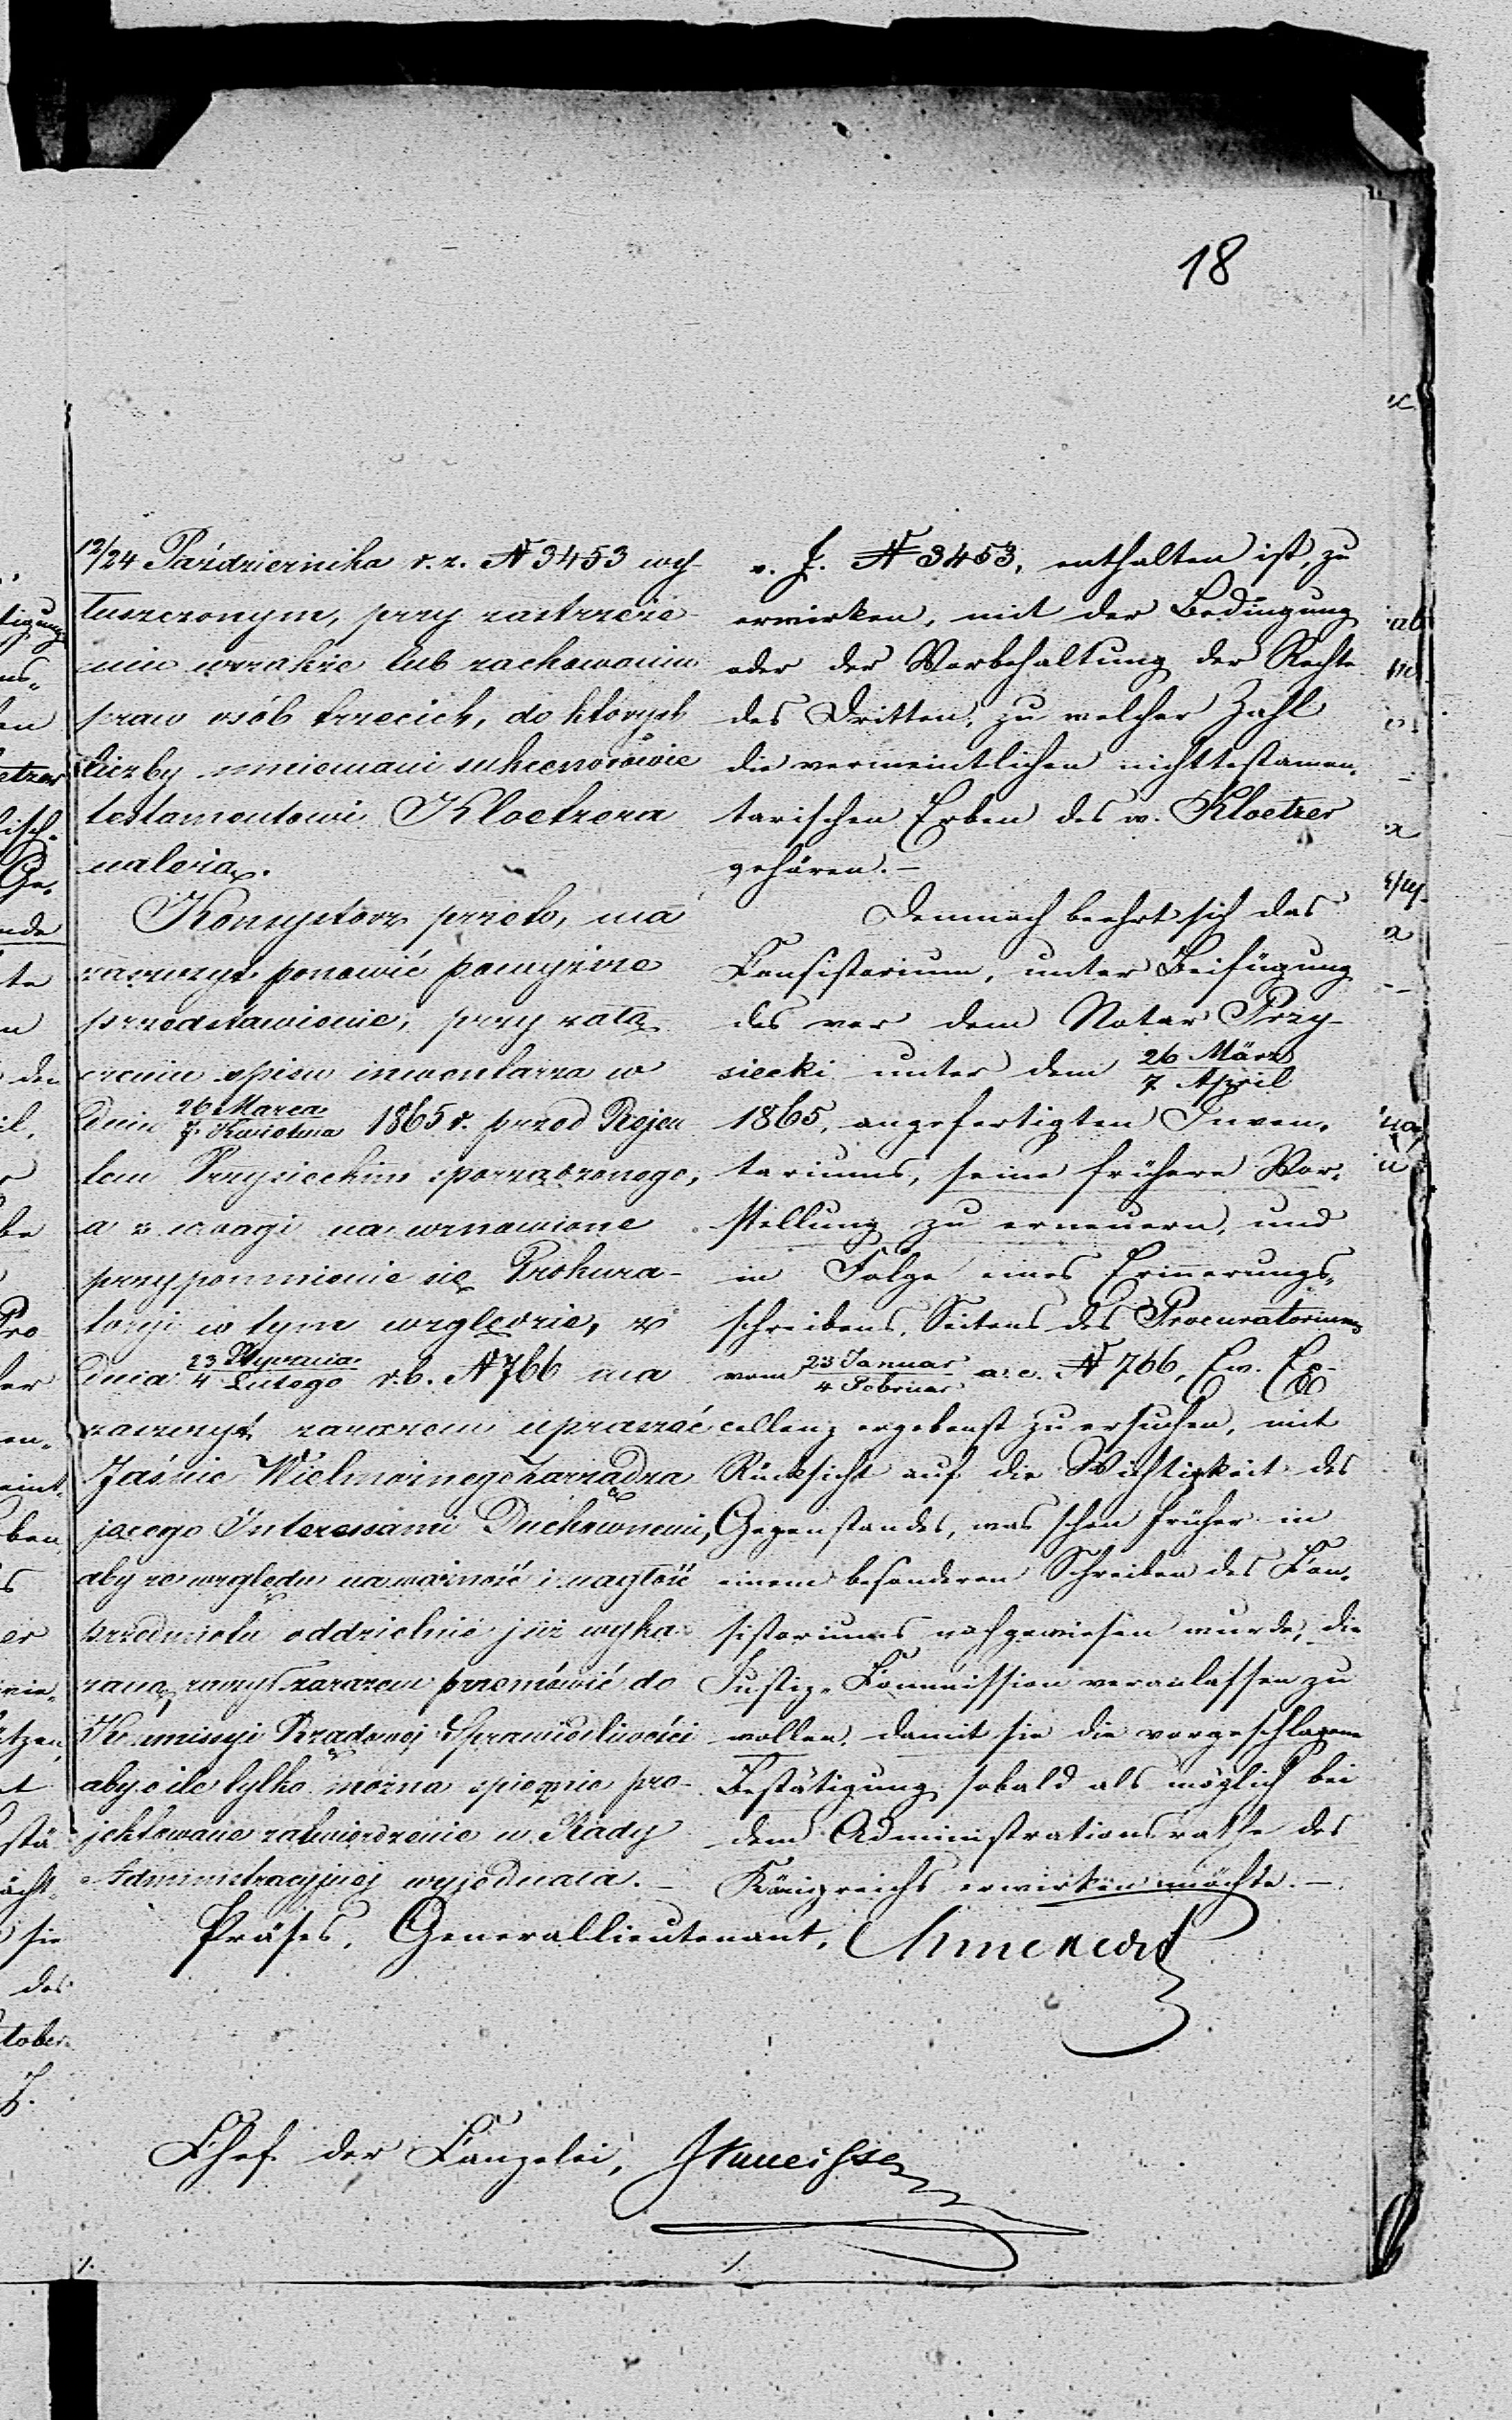 18
12/24 Października r. z. № 3453 wy-
łuszczonym, przy zastrzeże-
niu wszakże lub zachowaniu
praw osób trzecich, do których
liczby mniemani sukcesorowie
testamentowi Kloetzera
należą.
Konsystorz przeto, ma
zaszczyt ponowić powyższe
przedstawienie, przy załą-
czeniu spisu inwentarza w
dniu 26 Marca / 7 Kwietnia 1865 r. przed Rejen
tem Przysieckim sporządzonego,
a z uwagi na wznowione
przypomnienie się Prokura-
toryi w tym względzie, z
dnia 23 Stycznia / 4 Lutego r. b. № 766 ma
zaszczyt zarazem upraszać
Jaśnie Wielmożnego Zarządza
jącego Interessami Duchownemi,
aby ze względu na ważność i nagłość
przedmiotu oddzielnie już wyka-
zaną, raczył zarazem przemówić do
Kommissyi Rządowej Sprawiedliwości
aby o ile tylko można spiesznie pro-
jektowane zatwierdzenie u Rady
Administracyjnej wyjednała. –
v. J. № 3453, enthalten ist, zu
erwirken, mit der Bedingung
oder der Vorbehaltung der Rechte
des Dritten, zu welcher Zahl
die vermeintlichen nichttestamen-
tarischen Erben des w. Kloetzer
gehören. –
Demnach beehrt sich das
Consistorium, unter Beifügung
des vor dem Notar Przy-
siecki unter dem 26 März / 7 April
1865, angefertigten Inven-
tariums, seine frühere Vor-
stellung zu erneuern, und
in Folge eines Erinnerungs-
schreibens, Seitens des Procuratoriums
vom 23 Januar / 4 Februar a. c. № 766, Ew. Ex-
cellenz ergebenst zu ersuchen, mit
Rücksicht auf die Wichtigkeit des
Gegenstandes, was schon früher in
einem besonderen Schreiben des Con-
sistoriums nachgewiesen wurde, die
Justiz-Commission veranlassen zu
wollen, damit sie die vorgeschlagene
Bestätigung sobald als möglich bei
dem Administrationsrathe des
Königreichs erwirken möchte. –
Präses, Generallieutenant,
Chef der Canzelei,